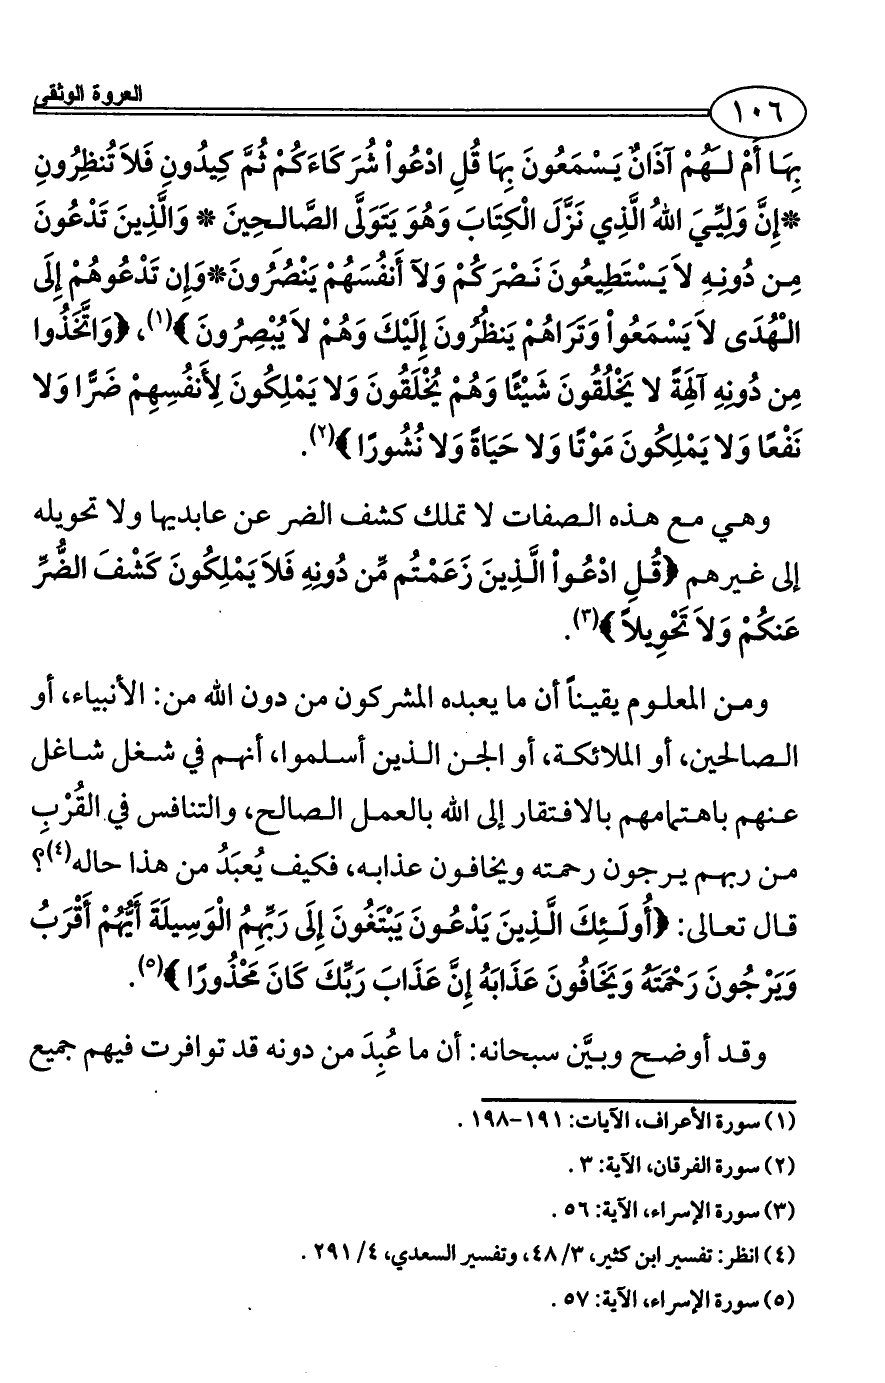 العروة الوثقى
١٠٦
بِهَا أَمْ لَهُمْ آذَانٌ يَسْمَعُونَ بِهَا قُلِ ادْعُواْ شُرَكَاءَكُمْ ثُمَّ كِيدُونِ فَلاَ تُنظِرُونِ
*إِنَّ وَلِيِّيَ اللهُ الَّذِي نَزَّلَ الْكِتَابَ وَهُوَ يَتَوَلَّى الصَّالِحِينَ * وَالَّذِينَ تَدْعُونَ
مِن دُونِهِ لاَ يَسْتَطِيعُونَ نَصْرَكُمْ وَلآ أَنفُسَهُمْ يَنْصُرُونَ*وَإِن تَدْعُوهُمْ إِلَى
الْهُدَى لاَ يَسْمَعُواْ وَتَرَاهُمْ يَنظُرُونَ إِلَيْكَ وَهُمْ لاَ يُبْصِرُونَ﴾(١)، ﴿وَاتَّخَذُوا
مِن دُونِهِ آلِهَةً لا يَخْلُقُونَ شَيْئًا وَهُمْ يُخْلَقُونَ وَلا يَمْلِكُونَ لِأَنفُسِهِمْ ضَرًّا وَلا
نَفْعًا وَلا يَمْلِكُونَ مَوْتًا وَلا حَيَاةً وَلا نُشُورًا﴾(٢).
وهي مع هذه الصفات لا تملك كشف الضر عن عابديها ولا تحويله
إلى غيرهم ﴿قُلِ ادْعُواْ الَّذِينَ زَعَمْتُم مِّن دُونِهِ فَلاَ يَمْلِكُونَ كَشْفَ الضُّرِّ
عَنكُمْ وَلاَ تَحْوِيلاً﴾(٣).
ومن المعلوم يقيناً أن ما يعبده المشركون من دون الله من: الأنبياء، أو
الصالحين، أو الملائكة، أو الجن الذين أسلموا، أنهم في شغل شاغل
عنهم باهتمامهم بالافتقار إلى الله بالعمل الصالح، والتنافس في القُرْبِ
من ربهم يرجون رحمته ويخافون عذابه، فكيف يُعبَدُ من هذا حاله(٤)؟
قال تعالى: ﴿أُولَئِكَ الَّذِينَ يَدْعُونَ يَبْتَغُونَ إِلَى رَبِّهِمُ الْوَسِيلَةَ أَيُّهُمْ أَقْرَبُ
وَيَرْجُونَ رَحْمَتَهُ وَيَخَافُونَ عَذَابَهُ إِنَّ عَذَابَ رَبِّكَ كَانَ مَحْذُورًا﴾(٥).
وقد أوضح وبيَّن سبحانه: أن ما عُبِدَ من دونه قد توافرت فيهم جميع
(١) سورة الأعراف، الآيات: ١٩١-١٩٨ .
(٢) سورة الفرقان، الآية: ٣ .
(٣) سورة الإسراء، الآية: ٥٦ .
(٤) انظر: تفسير ابن كثير، ٣/ ٤٨، وتفسير السعدي، ٤/ ٢٩١ .
(٥) سورة الإسراء، الآية: ٥٧ .